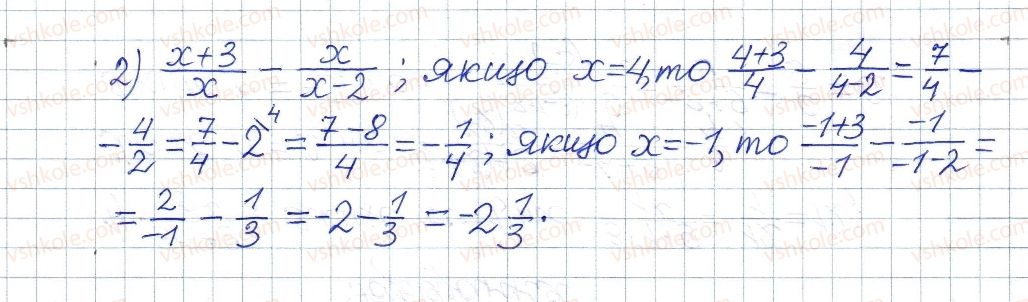 2) (x+3)/x - x/(x-2); якщо x=4, то (4+3)/4 - 4/(4-2) = 7/4 -
- 4/2 = 7/4 - 2^4 = (7-8)/4 = -1/4; якщо x=-1, то (-1+3)/-1 - -1/(-1-2) =
= 2/-1 - 1/3 = -2 - 1/3 = -2 1/3.